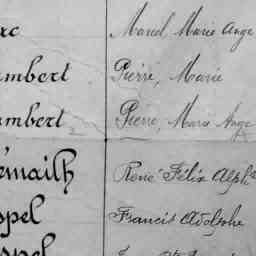 Marcel, Marie Ange
mbert Pierre, Marie
mbert Pierre, Marie Ange
émailh René Félix Alph
ppel Francis Adolphe